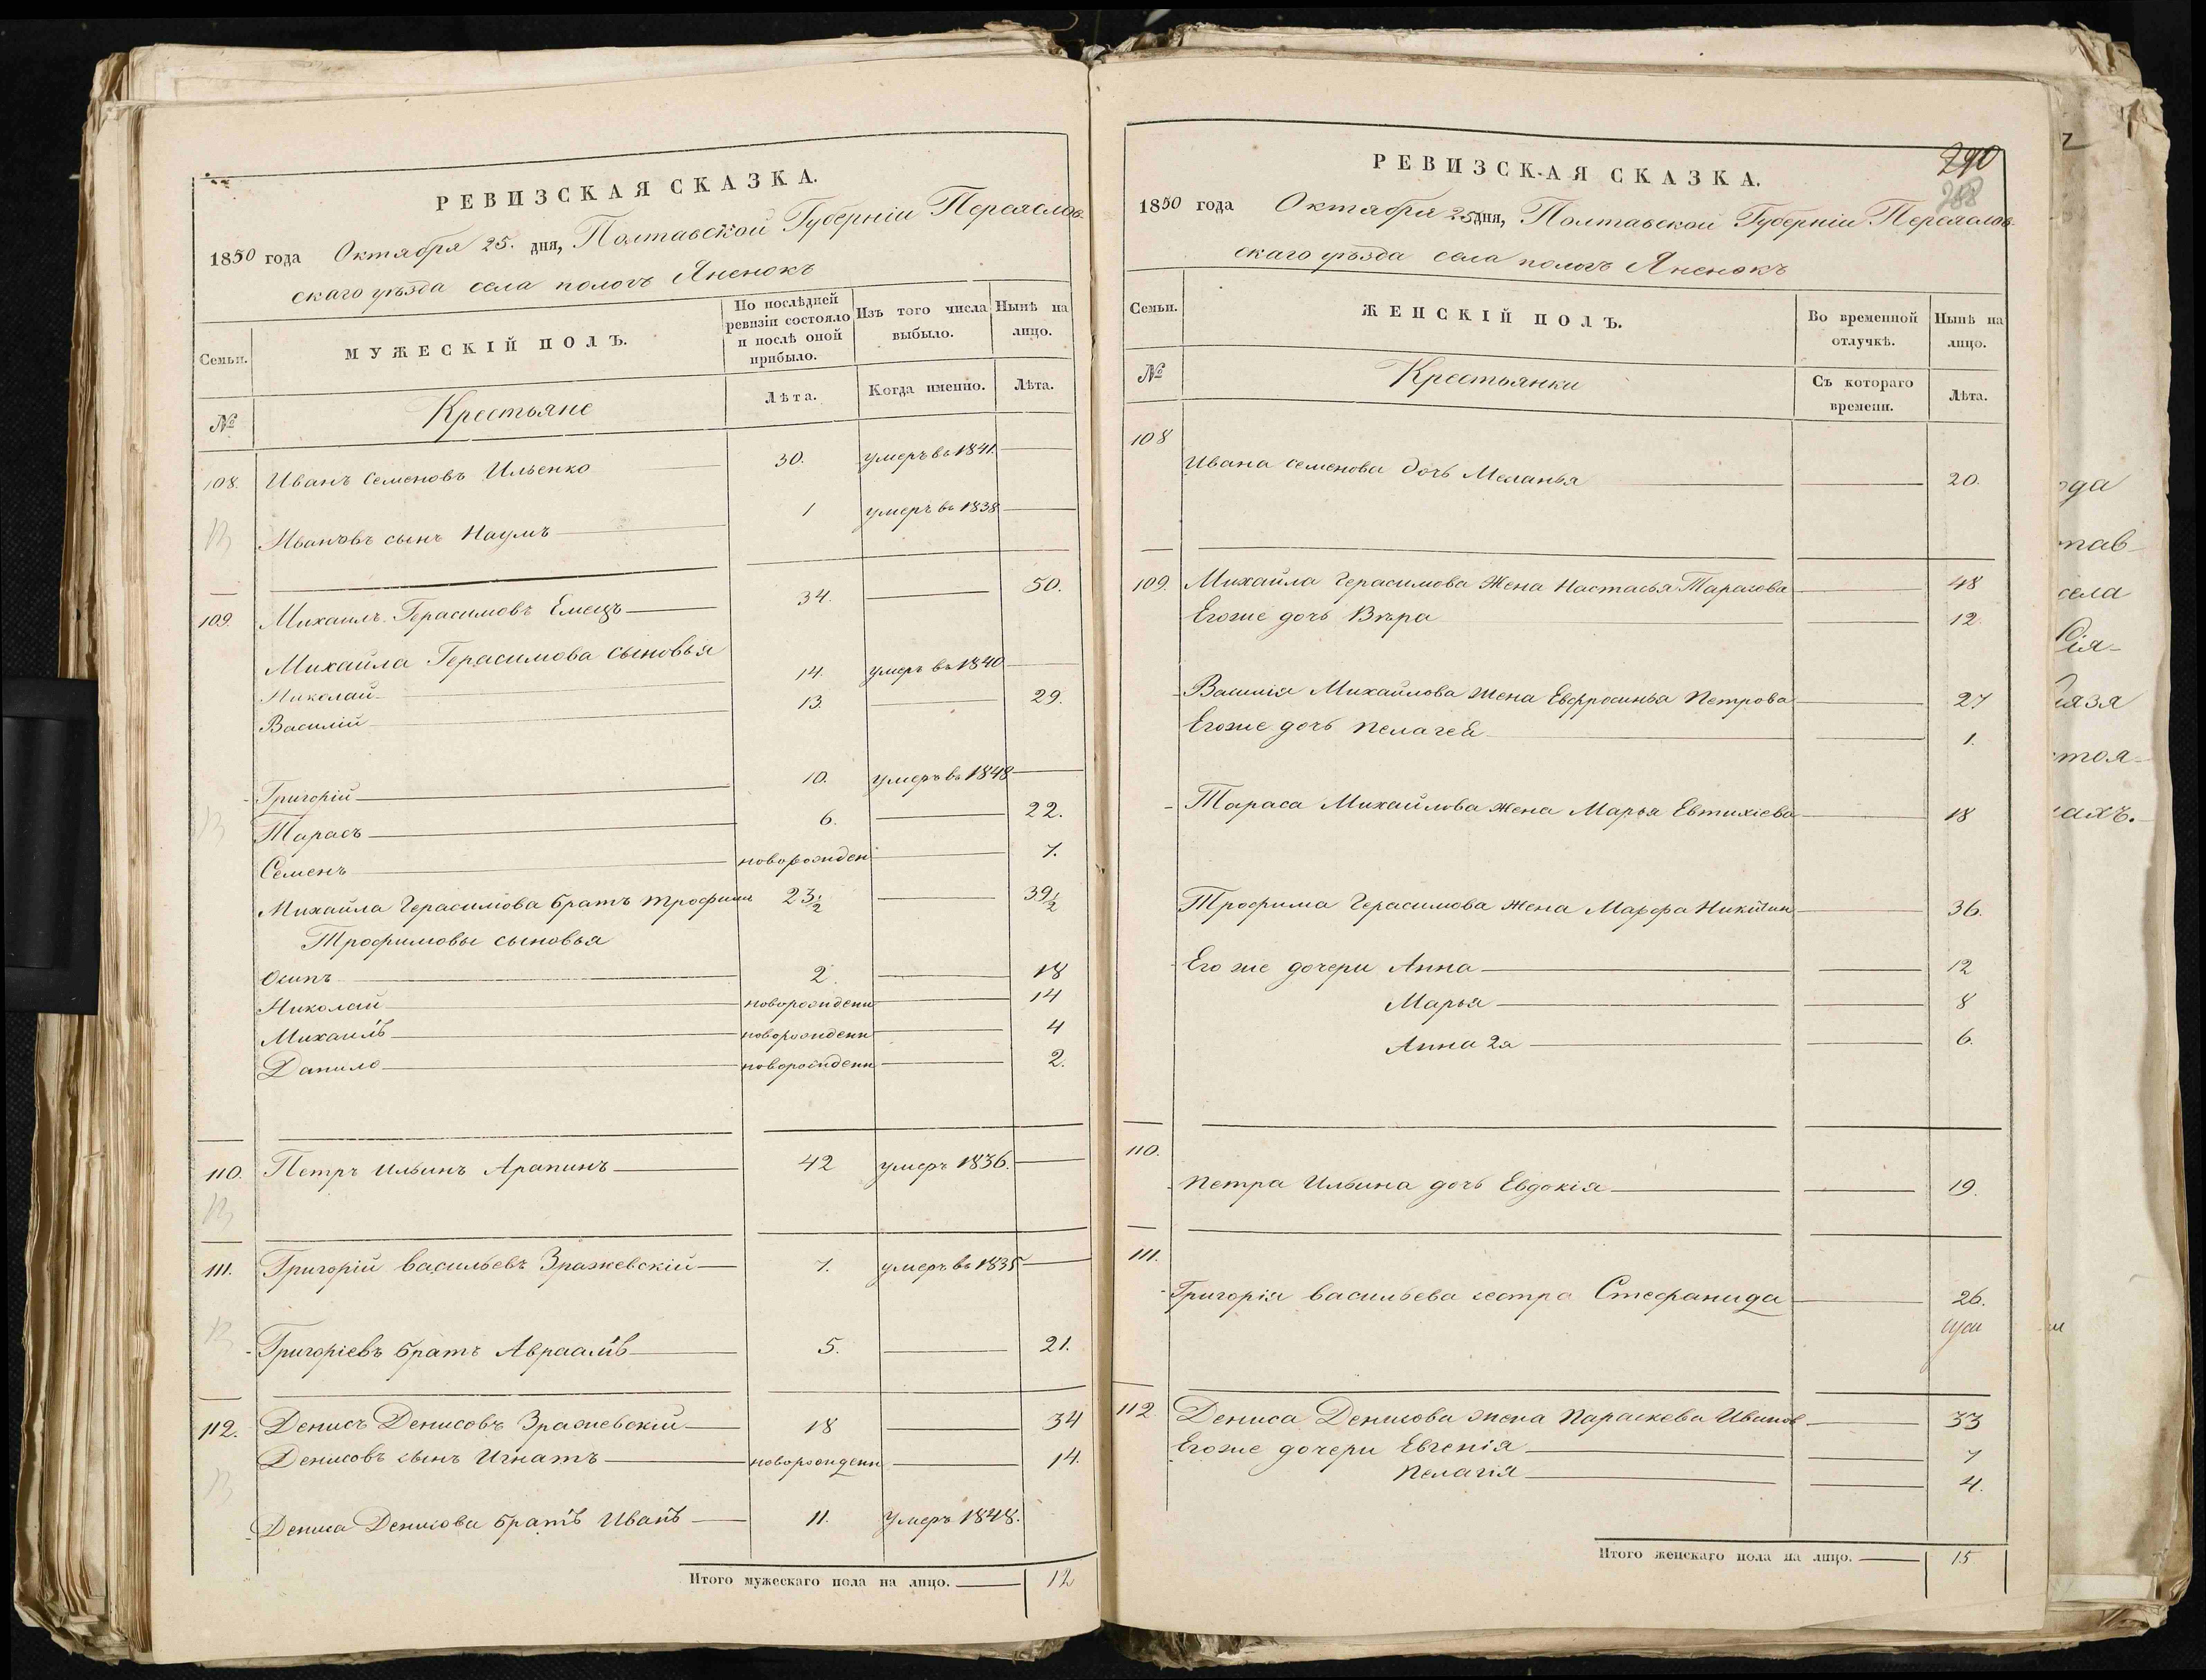 РЕВИЗСКАЯ СКАЗКА.
1850 года Октября 25. дня, Полтавской Губерніи Переяслов-
скаго уѣзда села пологъ Яненокъ
Семьи. МУЖЕСКІЙ ПОЛЪ. По послѣдней ревизіи состояло и послѣ оной прибыло. Изъ того числа выбыло. Нынѣ на лицо.
№ Крестьяне Лѣта. Когда именно. Лѣта.
108. Иванъ Семеновъ Ильенко 30. умеръ въ 1841.
Ивановъ сынъ Наумъ 1 умеръ въ 1838
109. Михаилъ Герасимовъ Емецъ 34. 50.
Михайла Герасимова сыновья
Николай 14. умеръ въ 1840
Василій 13. 29.
Григорій 10. умеръ въ 1848
Тарасъ 6. 22.
Семенъ новорожден 7.
Михайла Герасимова братъ Трофимъ 23½ 39½
Трофимовы сыновья
Осипъ 2. 18
Николай новорожденн 14
Михаилъ новорожденн 4
Данило новорожденн 2.
110. Петръ Ильинъ Арапинъ 42 умеръ 1836.
111. Григорій Васильевъ Зражевскій 7. умеръ въ 1835
Григоріевъ братъ Авраамъ 5. 21.
112. Денисъ Денисовъ Зражевскій 18 34
Денисовъ сынъ Игнатъ новорожденн 14.
Дениса Денисова братъ Иванъ 11. Умеръ 1848.
Итого мужескаго пола на лицо. 12
290
288
РЕВИЗСКАЯ СКАЗКА.
1850 года Октября 25 дня, Полтавской Губерніи Переяслов-
скаго уѣзда села пологъ Яненокъ
Семьи. ЖЕНСКІЙ ПОЛЪ. Во временной отлучкѣ. Нынѣ на лицо.
№ Крестьянки Съ котораго времени. Лѣта.
108 Ивана Семенова дочь Меланья 20.
109. Михайла Герасимова жена Настасья Тарасова 48
Егоже дочь Вѣра 12.
Василія Михайлова жена Евфросинья Петрова 27
Егоже дочь Пелагея 1.
Тараса Михайлова жена Марья Евтихіева 18
Трофима Герасимова жена Марфа Никитин 36.
Его же дочери Анна 12
Марья 8
Анна 2я 6.
110. Петра Ильина дочь Евдокія 19.
111. Григорія Васильева сестра Стефанида 26.
112. Дениса Денисова жена Параскева Иванов 33
Егоже дочери Евгенія 7
Пелагія 4.
Итого женскаго пола на лицо. 15